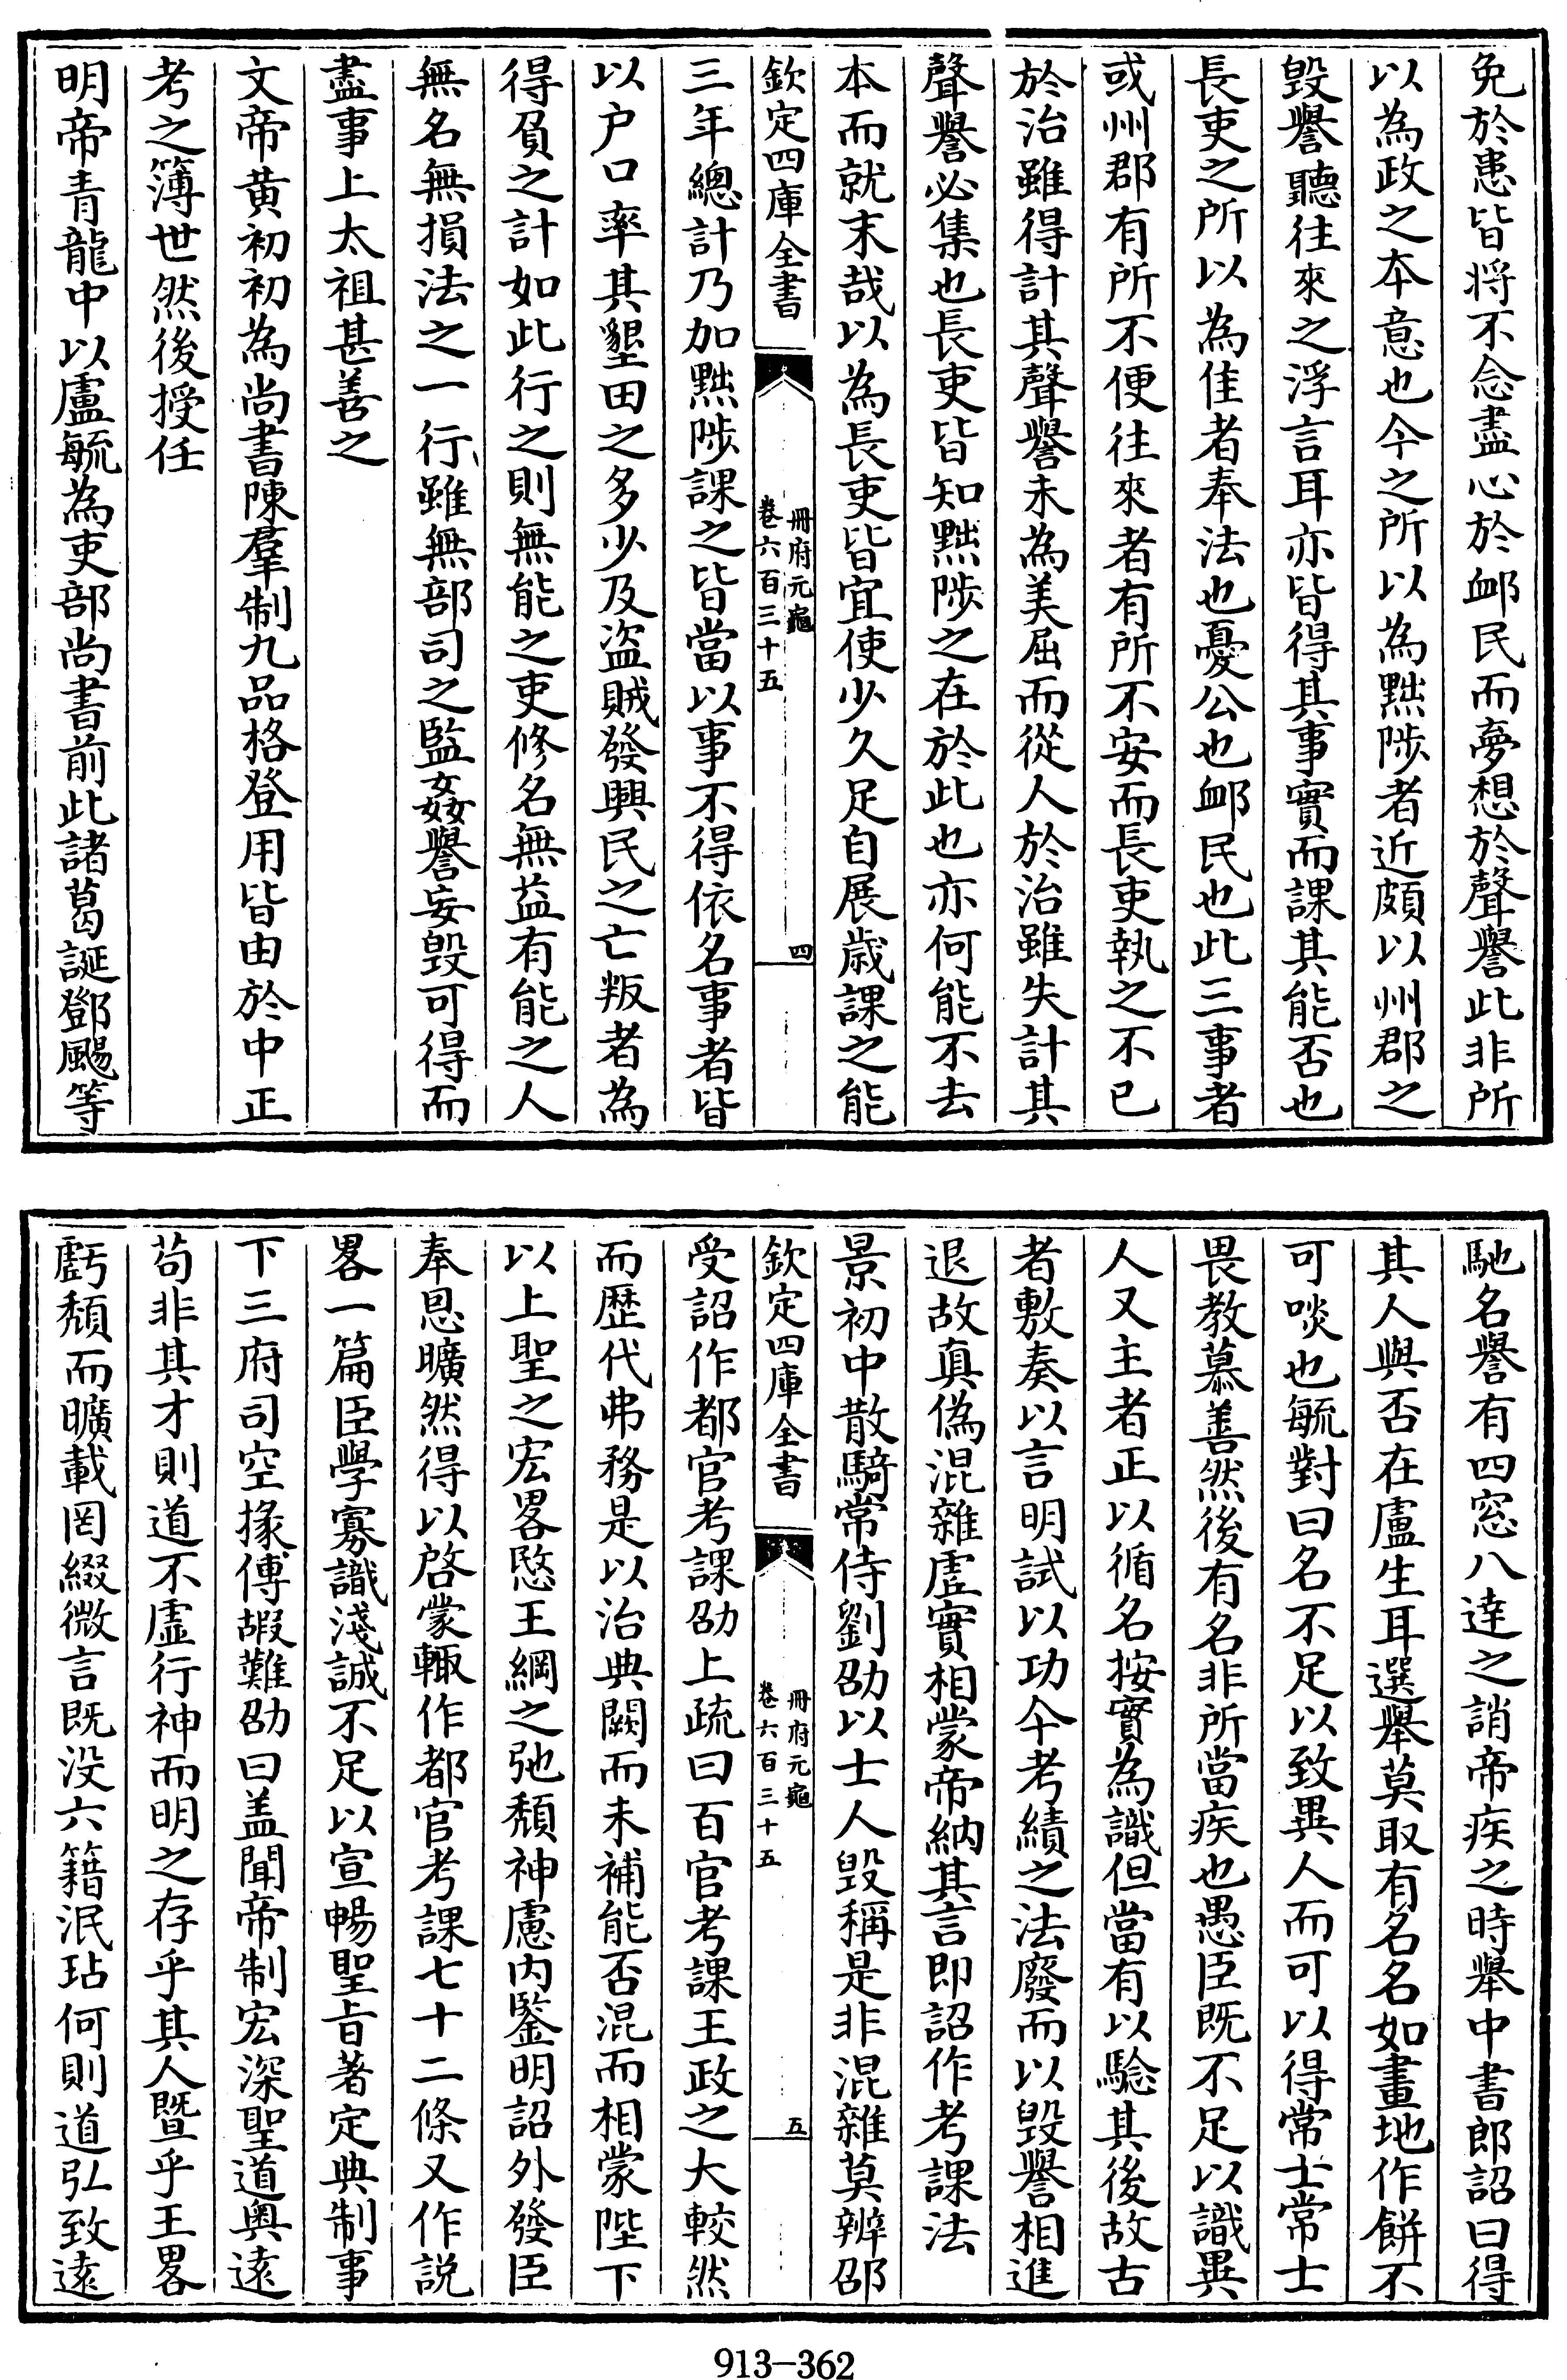 免於患皆将不念盡心於䘏民而夢想於聲譽此非所
以為政之本意也今之所以為黜陟者近頗以州郡之
毀譽聽往來之浮言耳亦皆得其事實而課其能否也
長吏之所以為佳者奉法也憂公也䘏民也此三事者
或州郡有所不便往來者有所不安而長吏執之不已
於治雖得計其聲譽未為美屈而從人於治雖失計其
聲譽必集也長吏皆知黜陟之在於此也亦何能不去
本而就末哉以為長吏皆宜使少久足自展歲課之能
欽定四庫全書
冊府元龜
卷六百三十五
四
三年總計乃加黜陟課之皆當以事不得依名事者皆
以户口率其墾田之多少及盗賊發興民之亡叛者為
得負之計如此行之則無能之吏修名無益有能之人
無名無損法之一行雖無部司之監姦譽妄毀可得而
盡事上太祖甚善之
文帝黄初初為尚書陳羣制九品格登用皆由於中正
考之簿世然後授任
明帝青龍中以盧毓為吏部尚書前此諸葛誕鄧颺等
馳名譽有四窓八達之誚帝疾之時舉中書郎詔曰得
其人與否在盧生耳選舉莫取有名名如畫地作餅不
可啖也毓對曰名不足以致異人而可以得常士常士
畏教慕善然後有名非所當疾也愚臣既不足以識異
人又主者正以循名按實為識但當有以驗其後故古
者敷奏以言明試以功今考績之法廢而以毀譽相進
退故真偽混雜虚實相蒙帝納其言即詔作考課法
景初中散騎常侍劉劭以士人毀稱是非混雜莫辨邵
欽定四庫全書
冊府元龜
卷六百三十五
五
受詔作都官考課劭上疏曰百官考課王政之大較然
而歷代弗務是以治典闕而未補能否混而相蒙陛下
以上聖之宏畧愍王綱之弛頽神慮内鑒明詔外發臣
奉恩曠然得以啓蒙輙作都官考課七十二條又作説
畧一篇臣學寡識淺誠不足以宣暢聖㫖著定典制事
下三府司空掾傅嘏難劭曰盖聞帝制宏深聖道奥遠
苟非其才則道不虚行神而明之存乎其人暨乎王畧
虧頽而曠載罔綴微言既没六籍泯玷何則道弘致遠
913-362